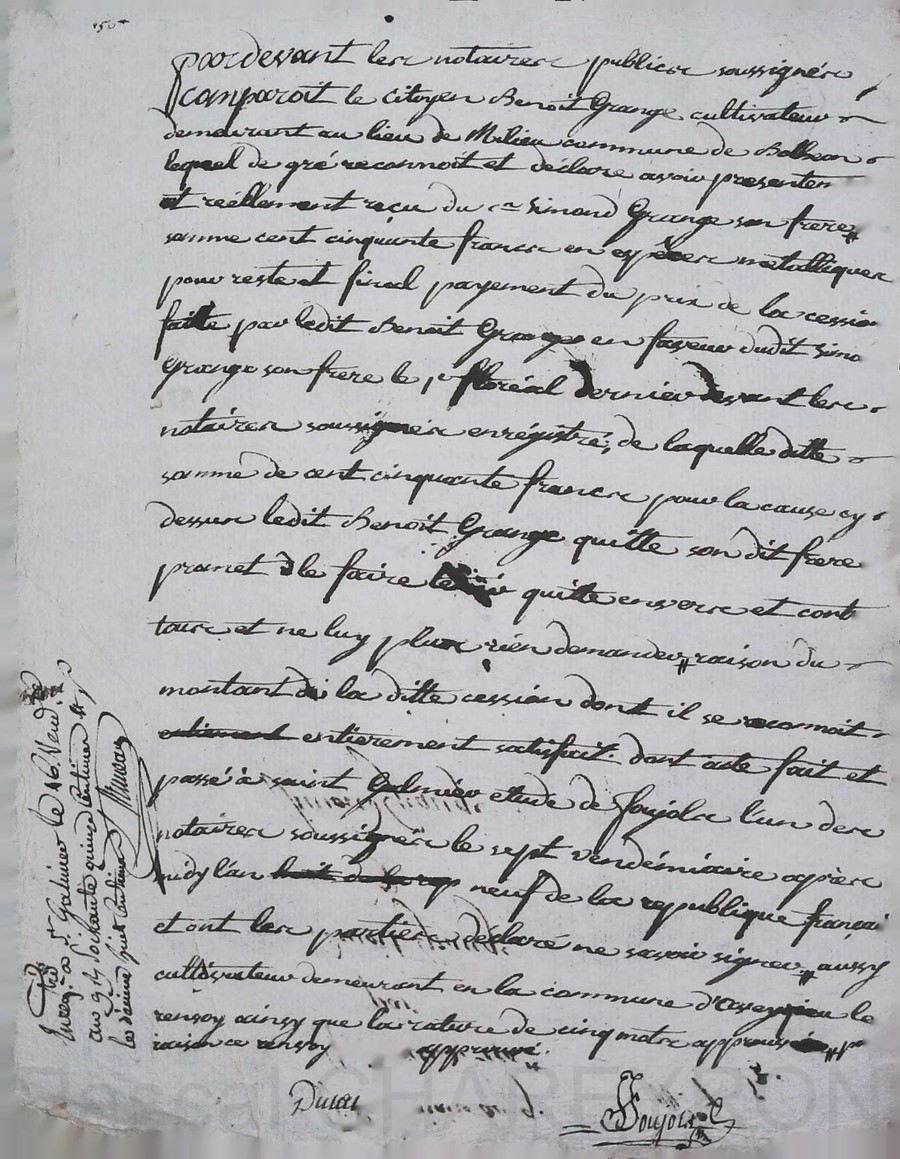 pardevant les notaires publics soussignés
comparoit le citoyen Benoit Grange cultivateur
demeurant au lieu de Milieu commune de
lequel de gré reconnoit et déclare avoir presentem
et réellement reçu du cn Simond Grange son frere
somme cent cinquante francs en espèces metalliques
pour reste et final payement du prix de la cession
faitte par ledit Benoit Grange en faveur dudit Simo
Grange son frere le 1er floréal dernier devant les
notaires soussignés enrégistré, de laquelle ditte
somme de cent cinquante francs pour la cause cy
dessus ledit Benoit Grange quitte son dit frere
promet de le faire tenir quitte envers et cont
tous et ne luy plus rien demander raison du
montant de la ditte cession dont il se reconnoit
entierement satisfait. dont acte fait et
passé à saint Galmier etude de Soujols l'un des
notaires soussignés le sept vendémiaire après
midy l'an huit de la rep neuf de la republique françai
et ont les parties déclaré ne savoir signer aussy
cultivateur demeurant en la commune d'aveyzieu le
renvoy ainsy que la rature de cinq mots approuvés
raison ce renvoy approuvé.
Soujols
Enreg. à St Galmier le 16 Vend.
an 9 soixante quinze centimes
le décime huit centimes